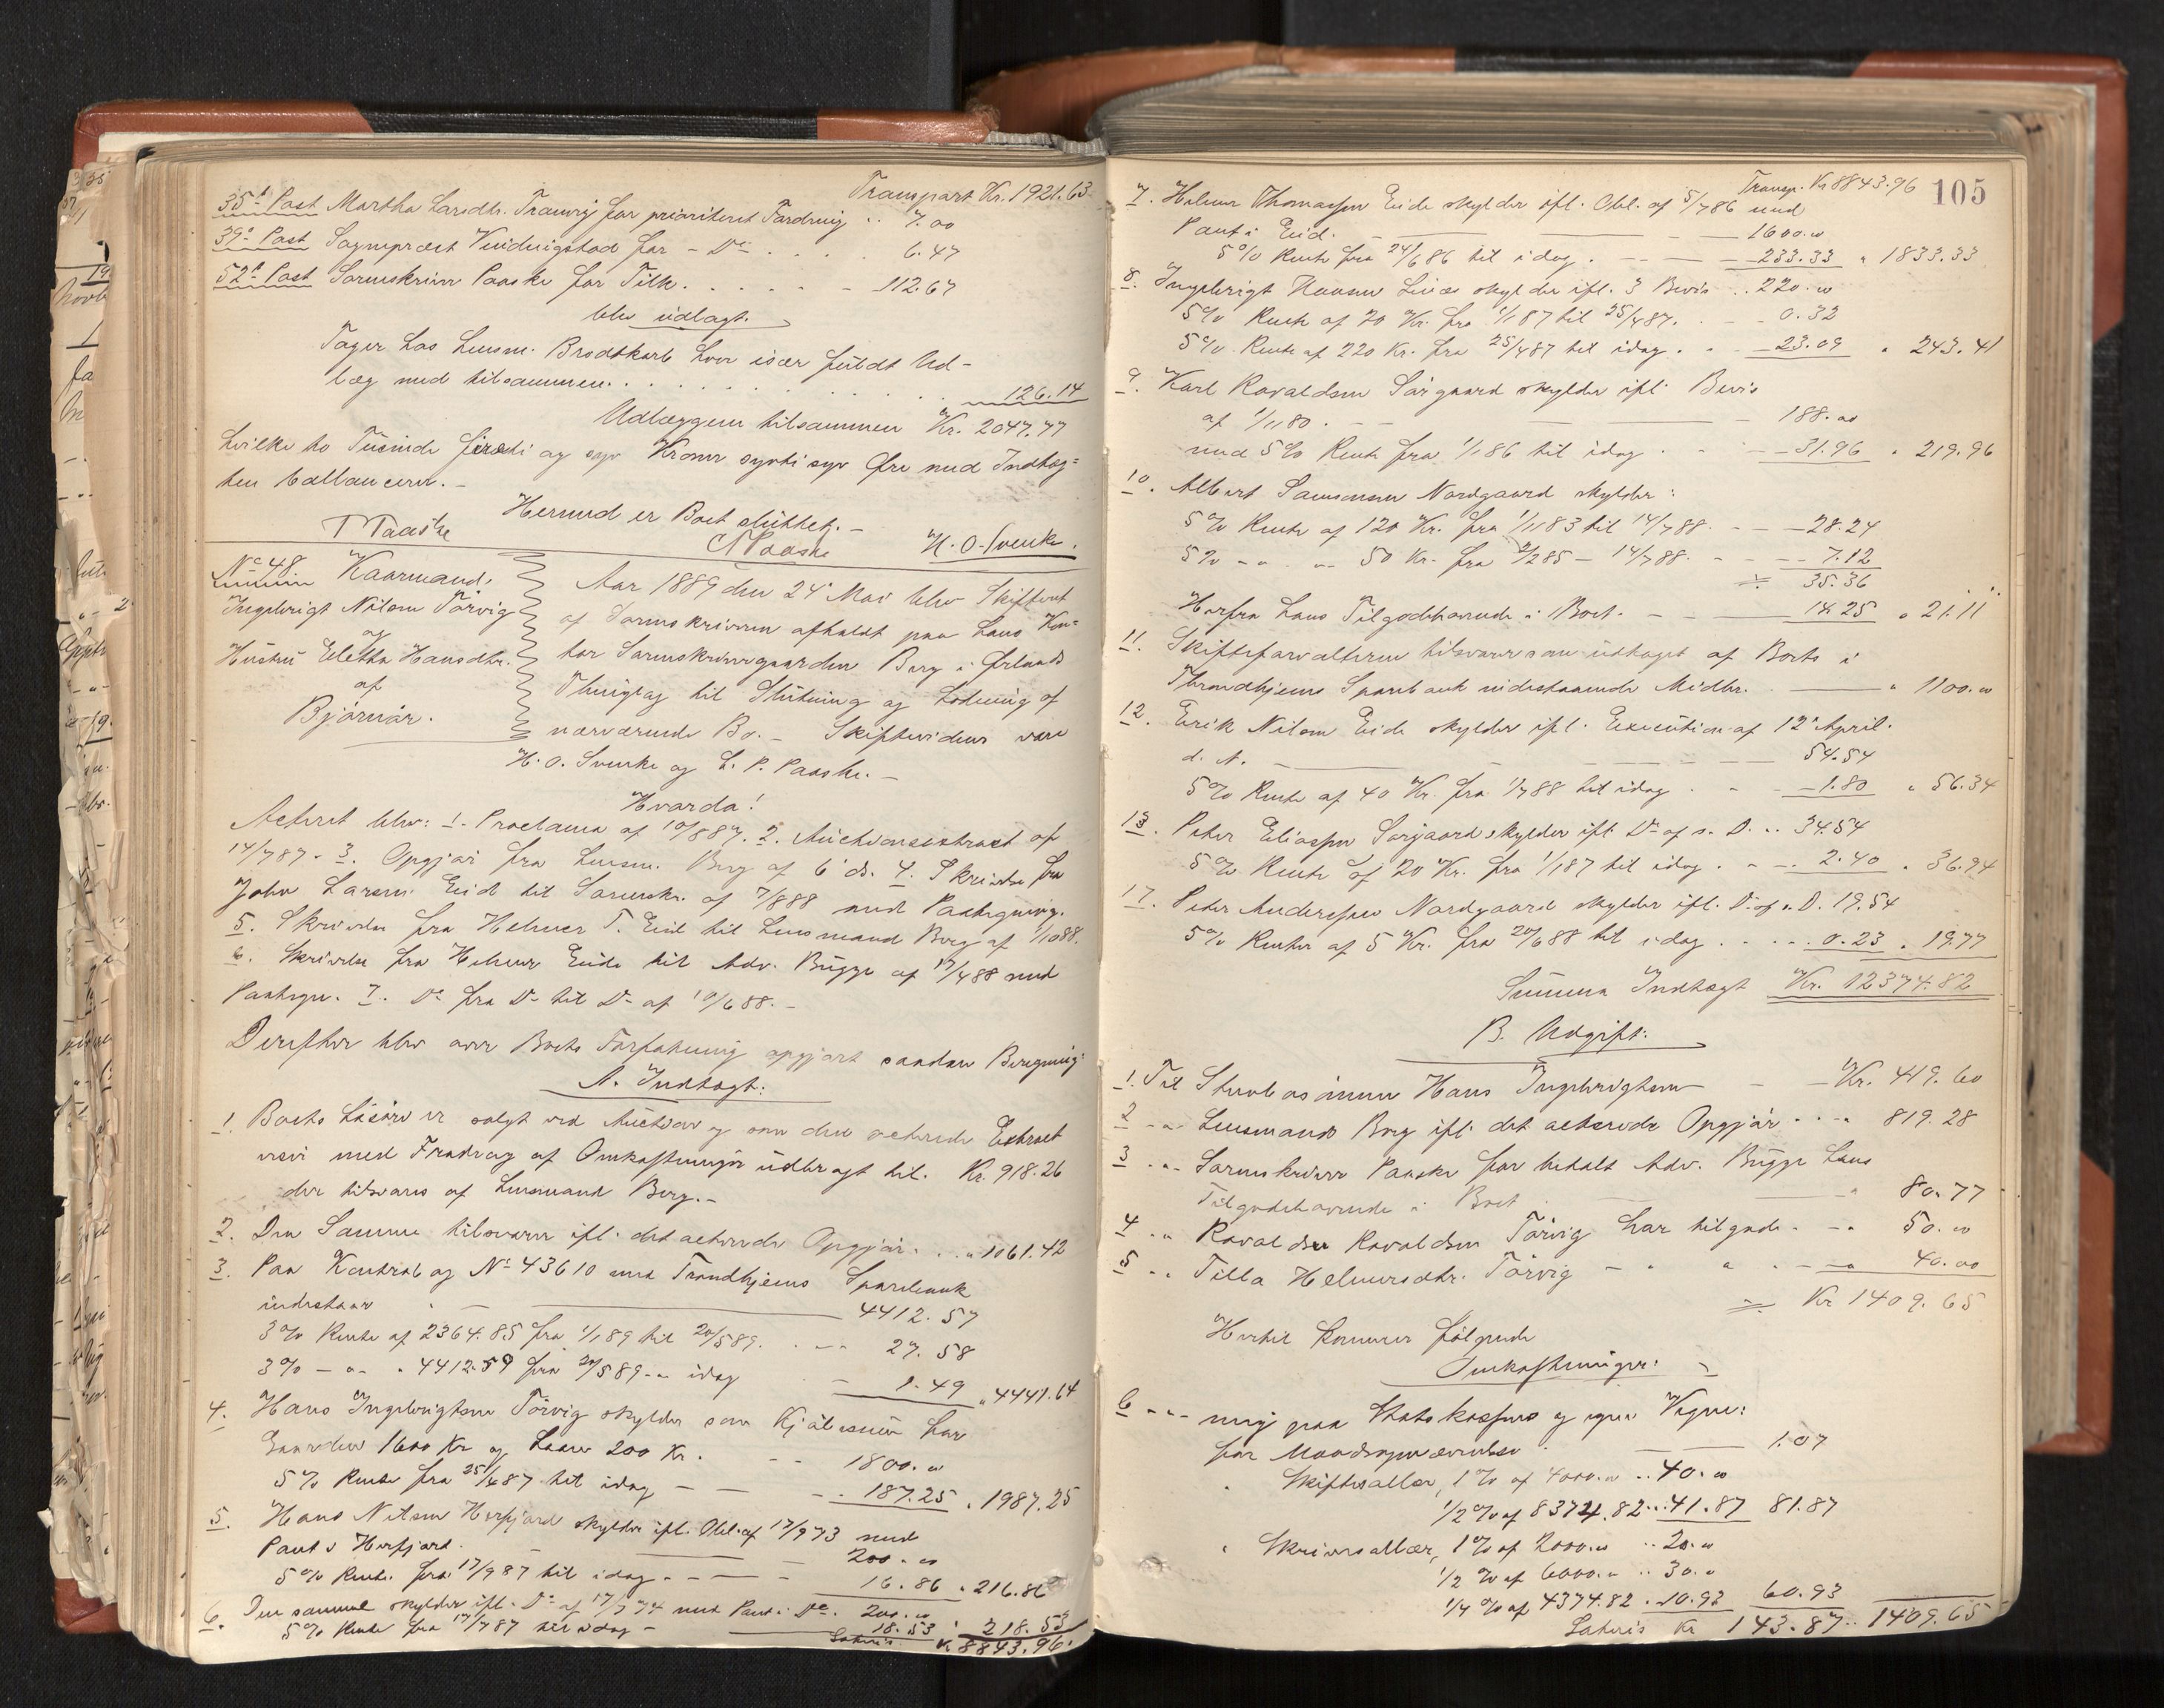 Transport Kr. 1921.63
35te Post Martha Larsdtr. Tranvig for prioriteret Fordring .. 7.00
39te Post Sogneprest Kvidvigstad for - Do - . . . 6.47
52de Post Sorenskriver Paaske for Tilk. . . . . . - 112.67
blev udlagt.
Tager hos Lensm. Brodtkorb hver især fuldt Ud-
læg med tilsammen. . . . . . . . . 126.14
Udlæggene tilsammen Kr. 2047.77
hvilke to Tusinde fireti og syv Kroner sytti syv Øre med Indtæg-
ten ballancerer. -
Hermed er Boet sluttet. -
T Paaske L P Paaske H. O. Svenke.
No 48
Kaarmand
Ingebrigt Nilsen Tørvig
og
Hustru Eletha Hansdtr.
af
Bjørnør.
Aar 1889 den 24de Mai blev Skifteret
af Sorenskriveren afholdt paa hans Kon-
tor Sorenskrivergaarden Berg i Ørlands
Thinglag til Slutning og Lodning af
nærværende Bo. - Skiftevidner vare
H. O. Svenke og L. P. Paaske. -
Hvorda!
Acteret blev: 1. Proclama af 10/8 87. 2. Auctionsextract af
14/7 87. 3. Opgjør fra Lensm. Berg af 6 ds. 4. Skrivelse fra
John Larsen Eid til Sorenskr. af 7/8 88 med Paategning.
5. Skrivelse fra Helmer T. Eid til Lensmand Berg af 1/10 88.
6. Skrivelse fra Helmer Eide til Adv. Bügge af 17/4 88 med
Paategn. 7. Do fra Do til Do af 10/6 88. -
Derefter blev over Boets Forfatning opgjort saadan Beregning:
A. Indtægt:
1. Boets Løsøre er solgt ved Auction og som den acterede Extract
viser med Fradrag af Omkostninger udbragt til. Kr. 918.26
der tilsvares af Lensmand Berg. -
2. Den Samme tilsvarer ifl. det acterede Opgjør. . . „ 1061.42
3. Paa Kontrabog No 43610 med Trondhjems Sparebank
indestaar - 4412.57
3 % Rente af 2364.85 fra 1/1 89 til 20/5 89. . - - 27.58
3 % - „ - „ 4412.59 fra 20/5 89 - „ idag - 1.49 „ 4441.64
4. Hans Ingebrigtsen Tørvig skylder som Kjøbesum for
Gaarden 1600 Kr. og Laan 200 Kr. - - 1800.00
5 % Rente fra 25/4 87 til idag - - - 187.25 „ 1987.25
5. Hans Nilsen Herfjord skylder ifl. Obl. af 17/9 73 med
Pant i Herfjord. - 200.00
5 % Rente fra 17/9 87 til idag - - - 16.86 „ 216.86
6. Den samme skylder ifl. Do af 17/7 74 med Pant i Do. 200.00
5 % Rente fra 17/7 87 til idag - 18.53 „ 218.53
Lateris Kr. 8843.96.
105
Transp. Kr. 8843.96
7. Helmer Thomassen Eide skylder ifl. Obl. af 5/7 86 med
Pant i Eid. - 1600.00
5 % Rente fra 24/6 86 til idag. - - - 233.33 „ 1833.33
8. Ingebrigt Hansen skylder ifl. 3 Bevis .. 220.00
5 % Rente af 20 Kr. fra 1/1 87 til 25/4 87. . - 0.32
5 % Rente af 220 Kr. fra 25/4 87 til idag . - 23.09 „ 243.41
9. Karl Ravaldsen Sørgaard skylder ifl. Bevis
af 1/11 80 . - - 188.00
med 5 % Rente fra 1/1 86 til idag . - - 31.96 „ 219.96
10. Albert Samsonsen Nordgaard skylder:
5 % Rente af 120 Kr. fra 1/11 83 til 14/7 88. - - 28.24
5 % - „ - „ 50 Kr. fra 9/2 85 - 14/7 88. - - - 7.12
35.36
Herfra hans Tilgodehavende i Boet. - - 14.25 „ 21.11
11. Skifteforvalteren tilsvarer som udtaget af Boets i
Throndhjems Sparebank indestaaende Midler. - „ 1100.00
12. Erik Nilsen Eide skylder ifl. Execution af 12te April
d. A. - 54.54
5 % Rente af 40 Kr. fra 1/7 88 til idag . - - 1.80 „ 56.34
13. Peter Eliassen Sørgaard skylder ifl. Do af s. D. .. 34.54
5 % Rente af 20 Kr. fra 1/1 87 til idag . - - 2.40 „ 36.94
17. Peter Anderssen Nordgaard skylder ifl. Do af s. D. 19.54
5 % Renter af 5 Kr. fra 20/6 88 til idag . . . . 0.23 „ 19.77
Summa Indtægt Kr. 12374.82
B. Udgift:
1. Til Stervbosønnen Hans Ingebrigtsen - - Kr. 419.60
2 - „ - Lensmand Berg ifl. det acterede Opgjør . . . „ 819.28
3 - „ - Sorenskriver Paaske for betalt Adv. Bügge hans
Tilgodehavende i Boet - „ 80.77
4 - „ Ravald Ravaldsen Tørvig har tilgode. - „ 50.00
5 - „ Tilla Helmersdtr. Tørvig - „ „ - - „ 40.00
Kr 1409.65
Hertil kommer følgende
Omkostninger:
6 - „ - mig paa Statskassens og egne Vegne:
for - 1.07
„ Skiftesallær, 1 % af 4000.00 .. 40.00
1/2 % af 8374.82 .. 41.87 81.87
„ Skriversallær, 1 % af 2000.00 .. 20.00
1/2 % af 6000.00 .. 30.00
1/4 % af 4374.82 . 10.93 60.93
Lateris Kr 143.87 .. 1409.65